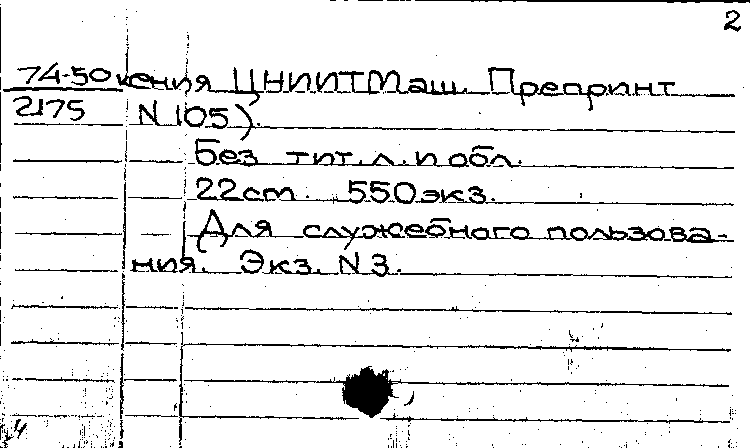 2
74-50 кения ЦНИИТМаш. Препринт
2175 N 105).
Без тит. л. и обл.
22см. 550экз.
Для служебного пользова-
ния. Экз. N 3.
4